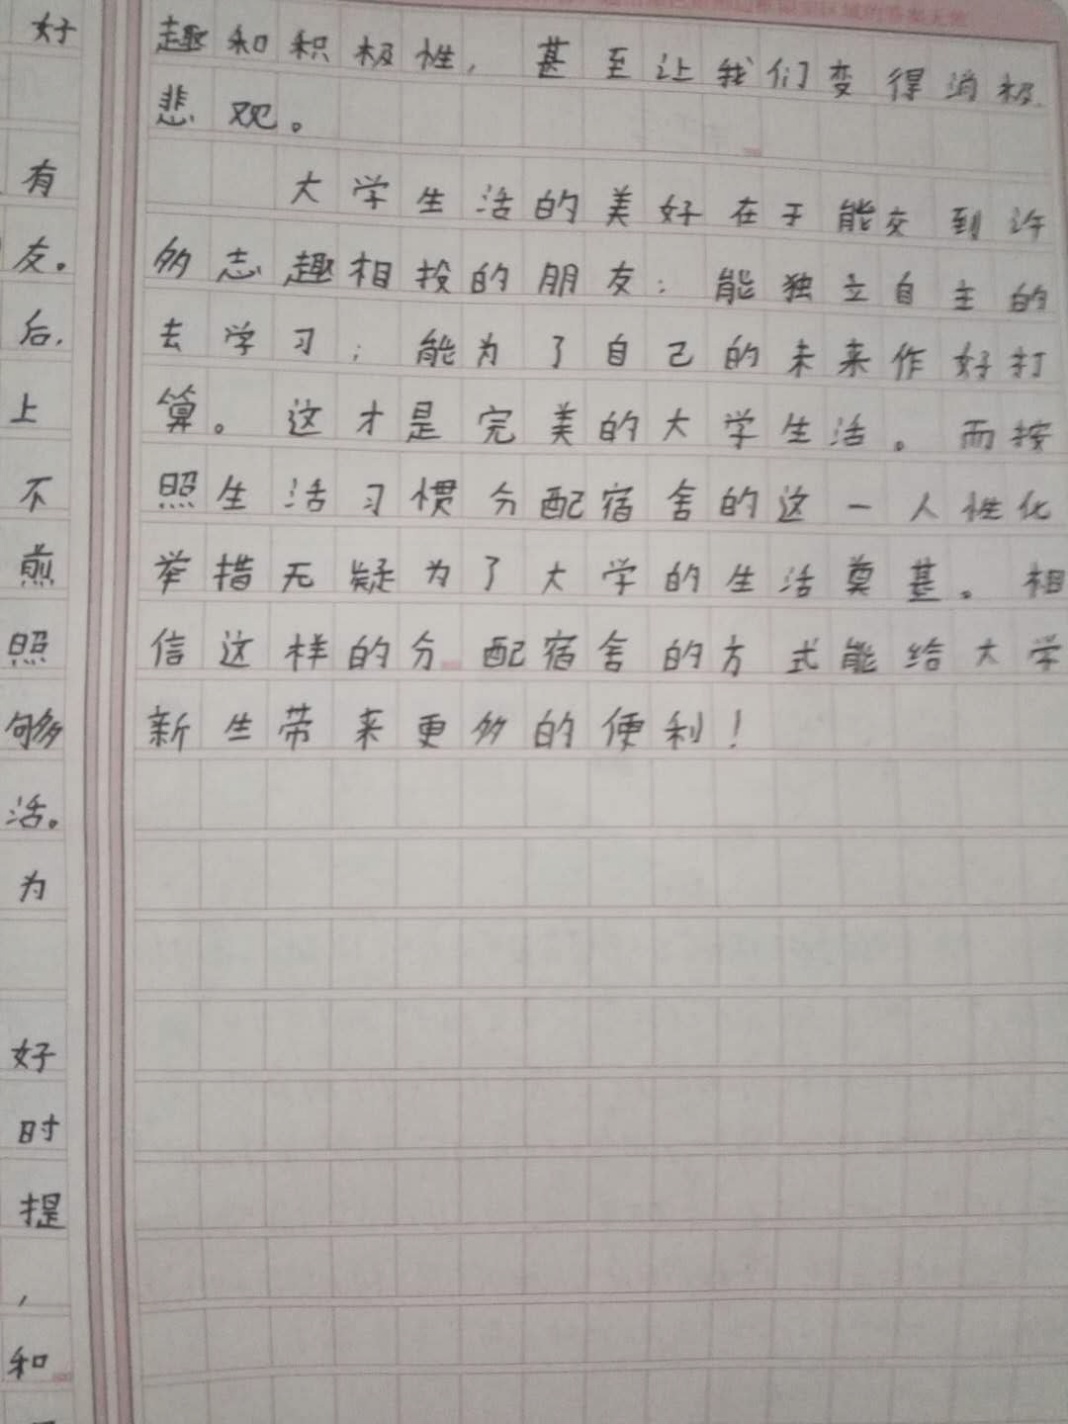 好
有
友。
后,
上
不
煎
照
够
活。
为
好
时
提
,
和
趣和积极性,甚至让我们变得消极
悲观。
大学生活的美好在于能交到许
多志趣相投的朋友;能独立自主的
去学习;能为了自己的未来作好打
算。这才是完美的大学生活。而按
照生活习惯分配宿舍的这一人性化
举措无疑为了大学的生活奠基。相
信这样的分配宿舍的方式能给大学
新生带来更多的便利!